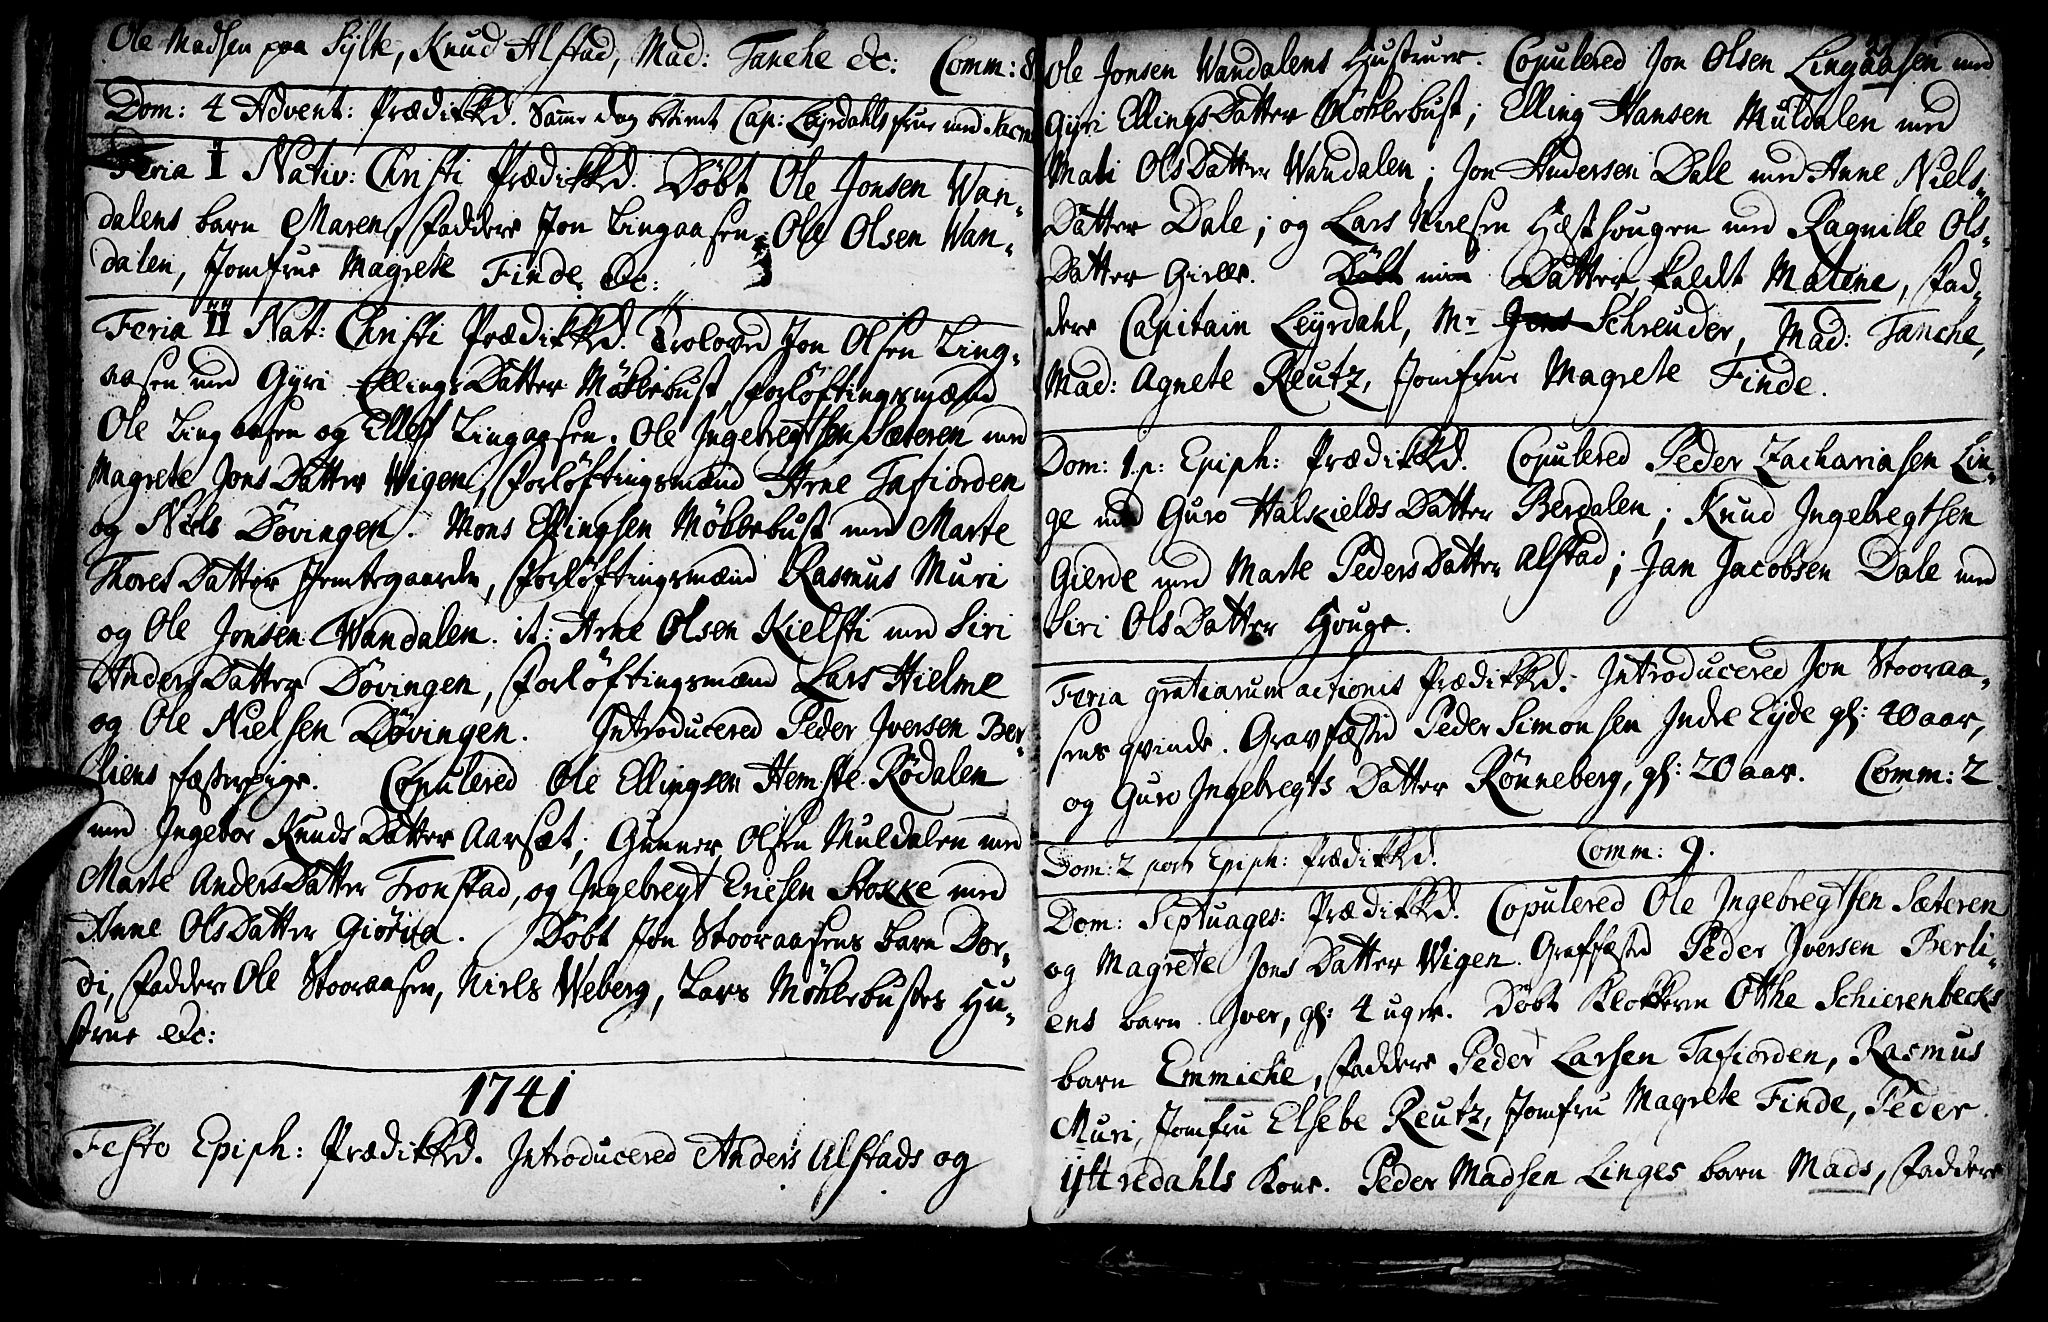 Ole Madsen paa Sylte, Knud Alstad, Mad: Tanche etc: Comm: 8
Dom: 4 Advent: Prædikked. Samme dag Cap: Leyrdahls frue med
Feria I Nativ: Christi Prædikked. Döbt Ole Jonsen Wan-
dalens barn Maren, Faddere Jon Lingaasen, Ole Olsen Wan-
dalen, Jomfrue Magrete Finde etc:
Feria II Nat: Christi Prædikked. Trolowed Jon Olsen Ling-
aasen med Gyri Ellings Datter Möklebust, Forlöftingsmænd
Ole Lingaasen og Ellef Lingaasen. Ole Ingebregtsen Sæteren med
Magrete Jons Datter Wigen, Forlöftingsmænd Arne Tafiorden
og Niels Dövingen. Mons Ellingsen Möklebust med Marte
Thores Datter Jemtegaarden, Forlöftingsmænd Rasmus Muri
og Ole Jonsen Wandalen. it: Arne Olsen Kielsti med Siri
Anders Datter Dövingen, Forlöftingsmænd Lars Hielme
og Ole Nielsen Dövingen. Introducered Peder Iversen Ber-
liens fæstepige. Copulered Ole Ellingsen Hemste Rödalen
med Ingebor Knuds Datter Aarsæt; Gunner Olsen Muldalen med
Marte Anders Datter Fronstad, og Ingebregt Ericsen Stokke med
Anne Ols Datter Giörva. Döbt Jon Stooraasens barn Dor-
di, Faddere Ole Stooraasen, Niels Weberg, Lars Möklebustes Hu-
strue etc:
1741
Festo Epiph: Prædikked. Introducered Anders Alstads og
Ole Jonsen Wandalens Hustruer. Copulered Jon Olsen Lingaasen med
Gyri Ellings Datter Möklebust; Elling Hansen Muldalen med
Mali Ols Datter Wandalen; Jon Andersen Dale med Anne Niels-
Datter Dale; og Lars Iversen Hæsthougen med Ragnille Ols-
Datter . Döbt min Datter, kaldt Malene, Fad-
dere Capitain Leyrdahl, Mr Jens Schreuder, Mad: Tanche,
Mad: Agnete Reutz, Jomfrue Magrete Finde.
Dom: 1 p: Epiph: Prædikked. Copulered Peder Zachariasen Lin-
ge med Guro Halskields Datter Berdalen; Knud Ingebregtsen
Gierde med Marte Peders Datter Alstad; Jan Jacobsen Dale med
Siri Ols Datter Houge.
Feria gratiarum actionis Prædikked. Introducered Jon Stooraa-
sens qvinde. Gravfæsted Peder Simonsen Indre Eyde gl: 40 aar,
og Guro Ingebregts Datter Rönneberg, gl: 20 aar. Comm: 2
Dom: 2 post Epiph: Prædikked. Comm: 9.
Dom: Septuages: Prædikked. Copulered Ole Ingebregtsen Sæteren
og Magrete Jons Datter Wigen. Grafsæsted Peder Iversen Berli-
ens barn Iver, gl: 4 uger. Döbt Klokkeren Otthe Schierenbecks
barn Emmiche, Faddere Peder Larsen Tafiorden, Rasmus
Muri, Jomfru Elsebe Reutz, Jomfru Magrete Finde, Peder
Yttredahls Kone. Peder Madsen Linges barn Mads, Faddere